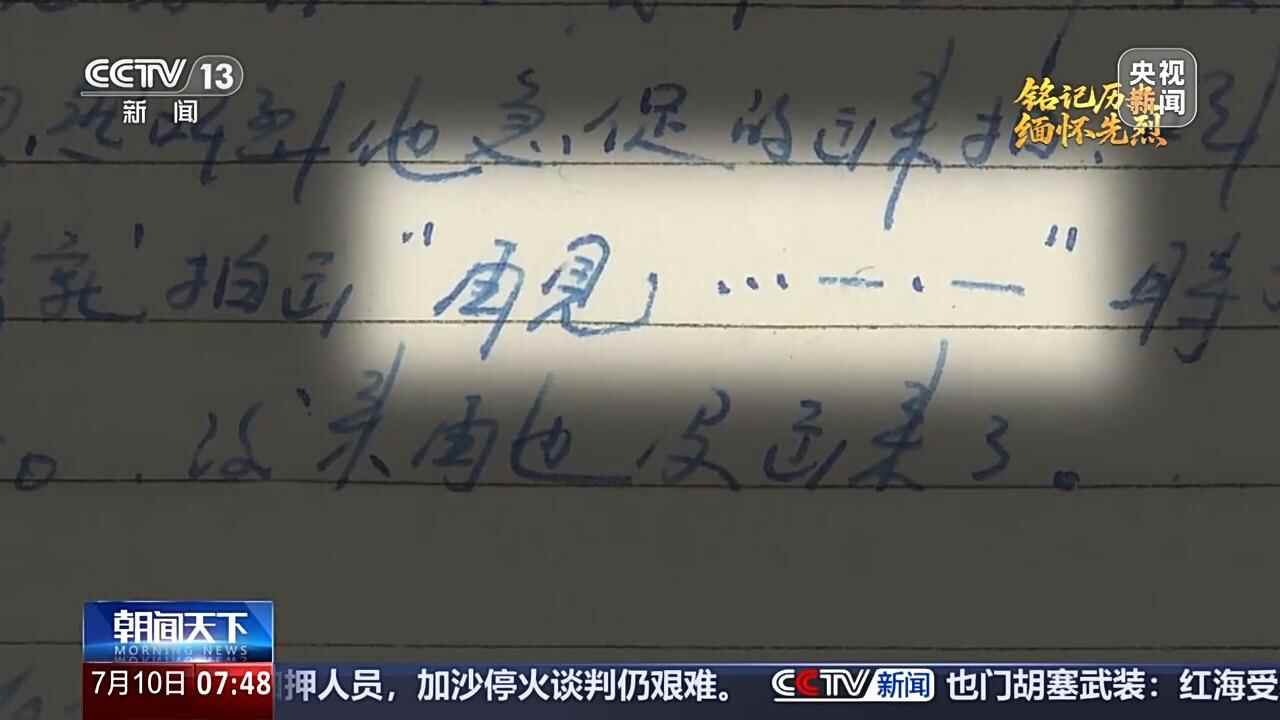 CCTV 13
新闻
央视
新闻
铭记历
缅怀先烈
他急促的
拍
拍回“再见, ···—·—”
。 没来
再也没回来了。
朝闻天下
MORNING NEWS
7月10日 07:48
押人员,加沙停火谈判仍艰难。 CCTV新闻 也门胡塞武装:红海受